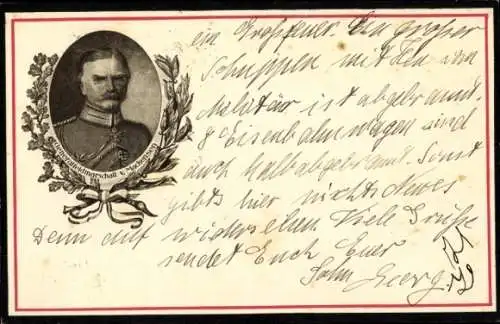 ein Großfeuer. Ein großer
Schuppen mitten im
Militär ist abgebrannt.
8 Eisenbahnwagen sind
auch halb abgebrannt. Sonst
gibts hier nichts Neues
Denn auf wiedersehen. Viele Grüße
sendet Euch Euer
Sohn Georg.
Generalfeldmarschall v. Mackensen